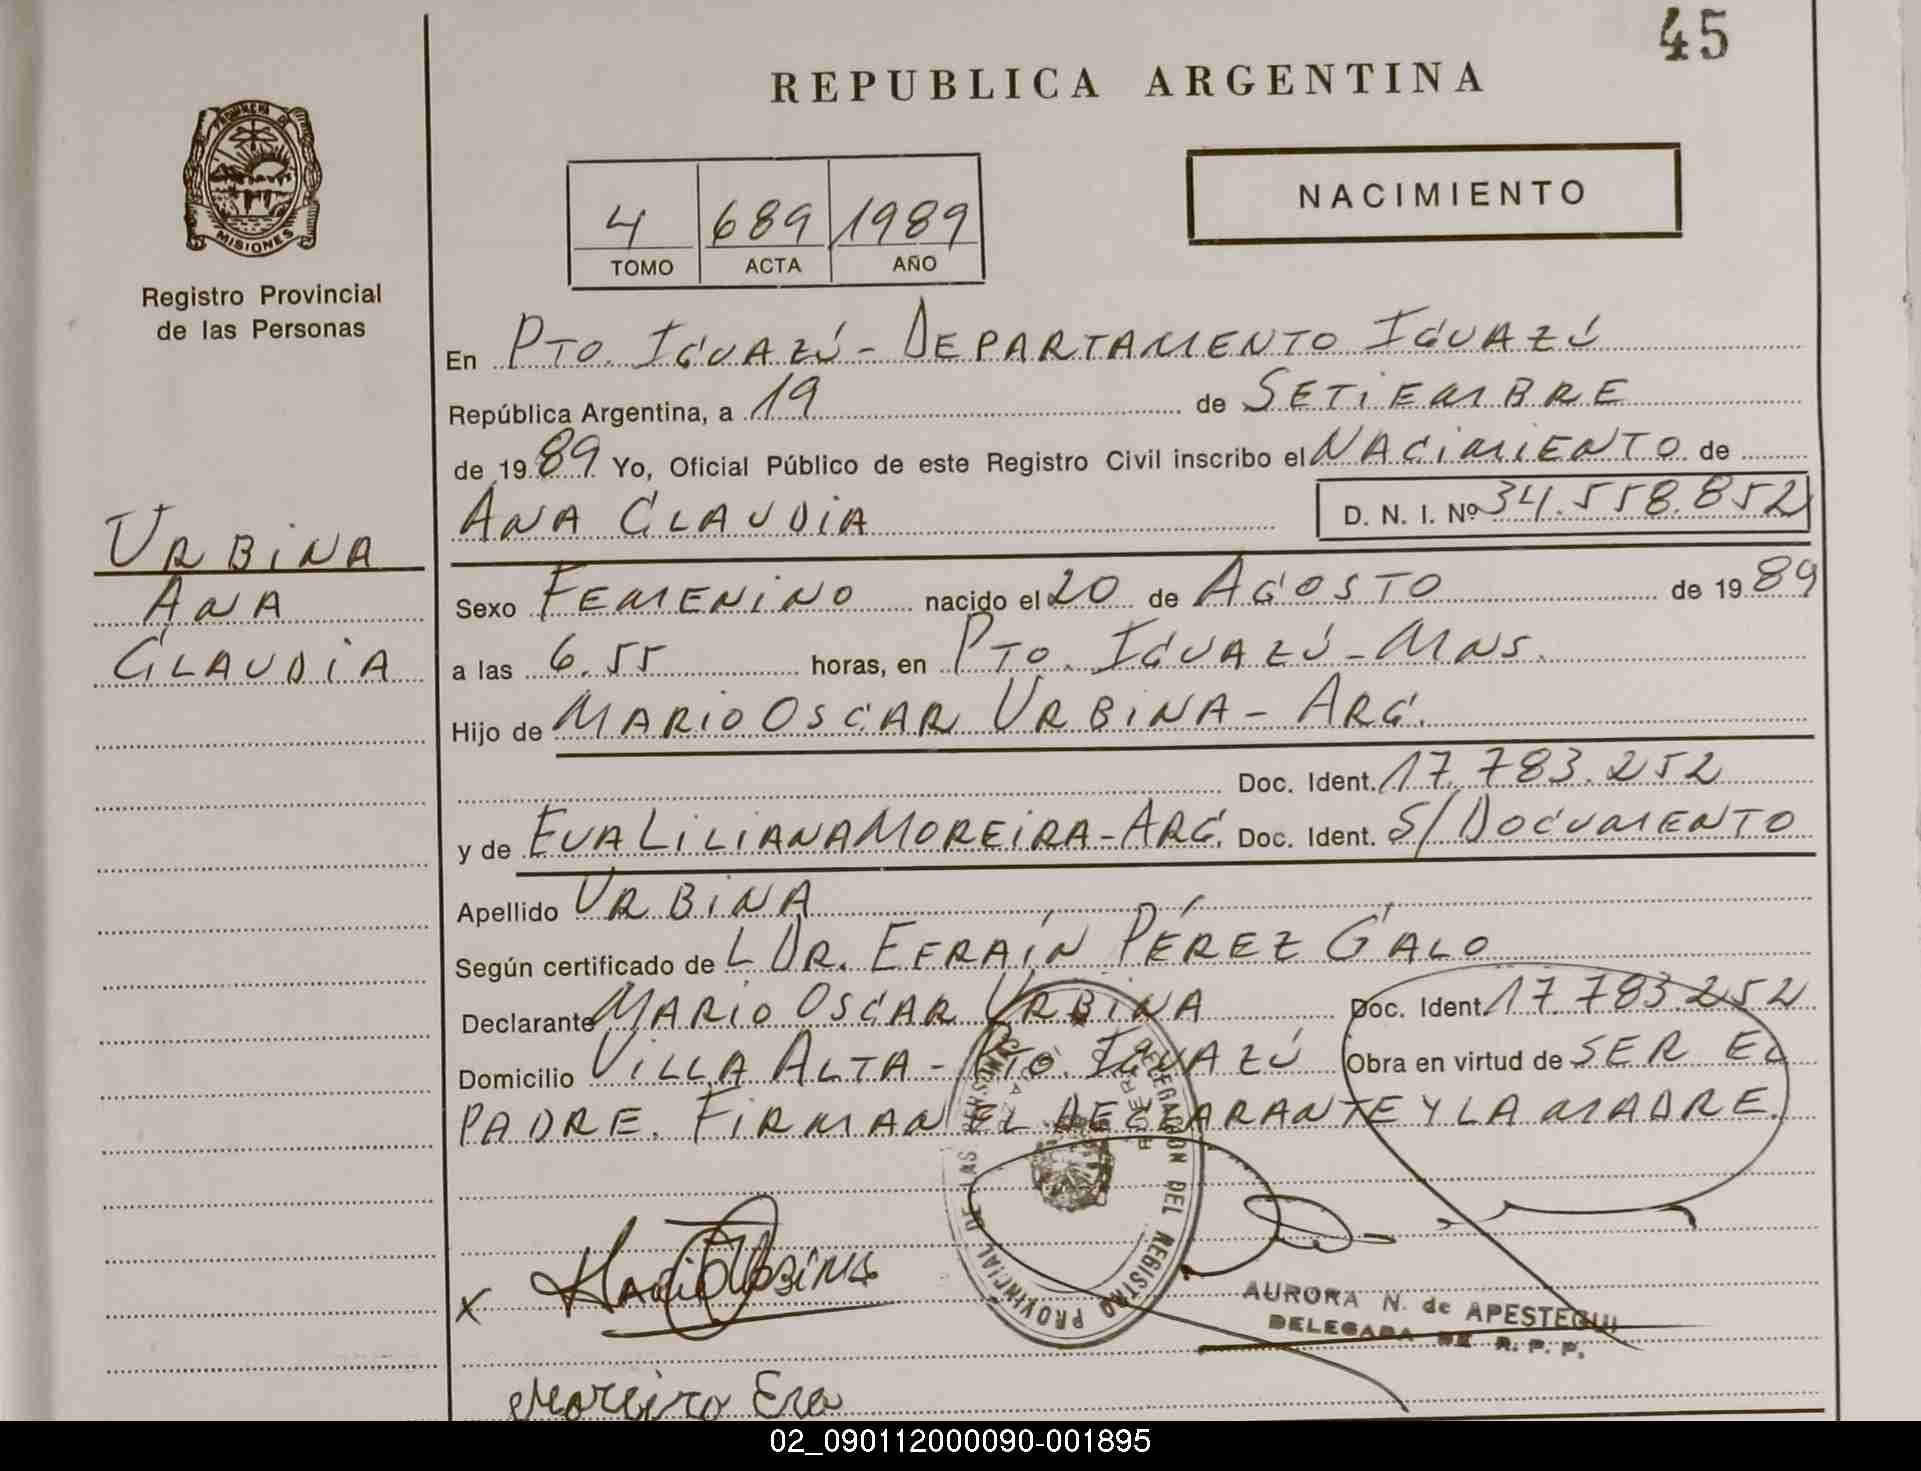 45
REPUBLICA ARGENTINA
PROVINCIA DE
MISIONES
Registro Provincial
de las Personas
NACIMIENTO
4 689 1989
TOMO ACTA AÑO
En PTO. IGUAZÚ - DEPARTAMENTO IGUAZÚ
República Argentina, a 19 de SETIEMBRE
de 1989 Yo, Oficial Público de este Registro Civil inscribo el NACIMIENTO de
ANA CLAUDIA D. N. I. Nº 34.558.852
URBINA
ANA
CLAUDIA
Sexo FEMENINO nacido el 20 de AGOSTO de 1989
a las 6.55 horas, en PTO. IGUAZÚ - MNS.
Hijo de MARIO OSCAR URBINA - ARG.
Doc. Ident. 17.783.252
y de EVA LILIANA MOREIRA - ARG. Doc. Ident. S/DOCUMENTO
Apellido URBINA
Según certificado de L DR. EFRAÍN PÉREZ GALO
Declarante MARIO OSCAR URBINA Doc. Ident. 17.783.252
Domicilio VILLA ALTA - PTO. IGUAZÚ Obra en virtud de SER EL
PADRE. FIRMAN EL DECLARANTE Y LA MADRE.
DELEGACION DEL REGISTRO PROVINCIAL DE LAS PERSONAS
X Mario O Urbina
AURORA N. de APESTEGUI
DELEGADA DE R. P. P.
Moreira Eva
02_090112000090-001895